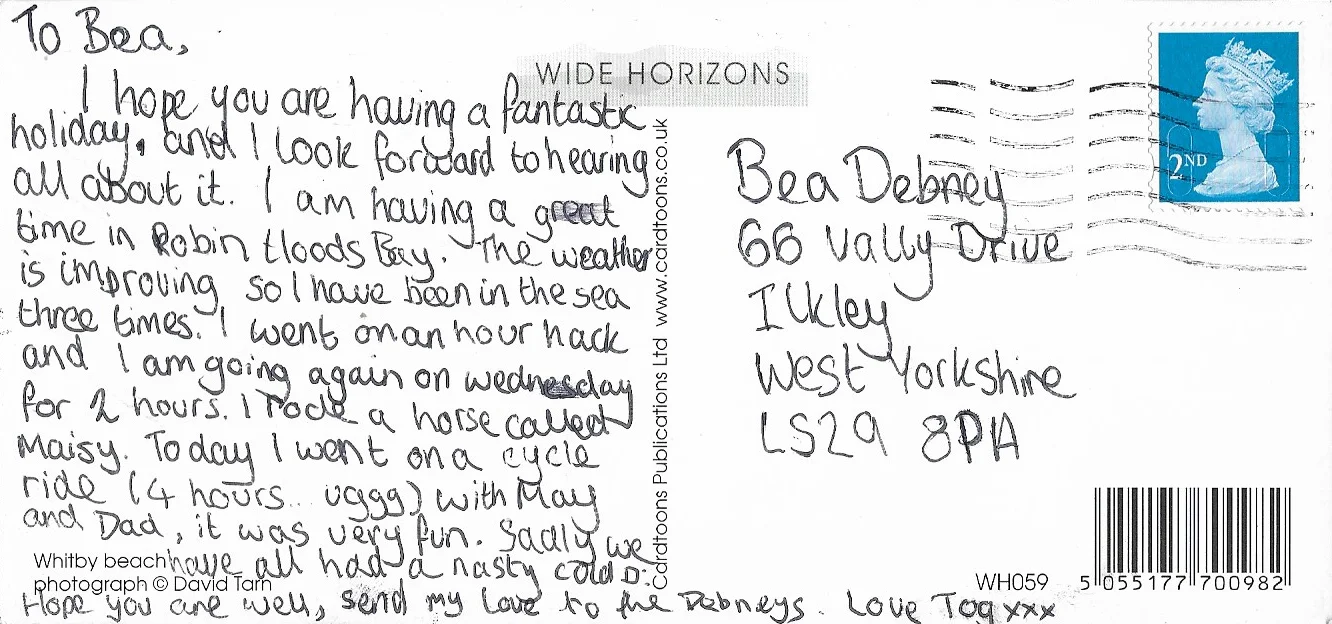 To Bea,
I hope you are having a fantastic
holiday, and I look forward to hearing
all about it. I am having a great
time in Robin Hoods Bay. The weather
is improving so I have been in the sea
three times. I went on an hour hack
and I am going again on wednesday
for 2 hours. I rode a horse called
Maisy. Today I went on a cycle
ride (4 hours... uggg) with May
and Dad, it was very fun. Sadly we
have all had a nasty cold D:
Hope you are well, send my love to the Debneys. Love Tog xxx
Whitby beach
photograph © David Tarn
WIDE HORIZONS
Cardtoons Publications Ltd www.cardtoons.co.uk
2ND
Bea Debney
66 Vally Drive
Ilkley
West Yorkshire
LS29 8PA
WH059
5 055177 700982